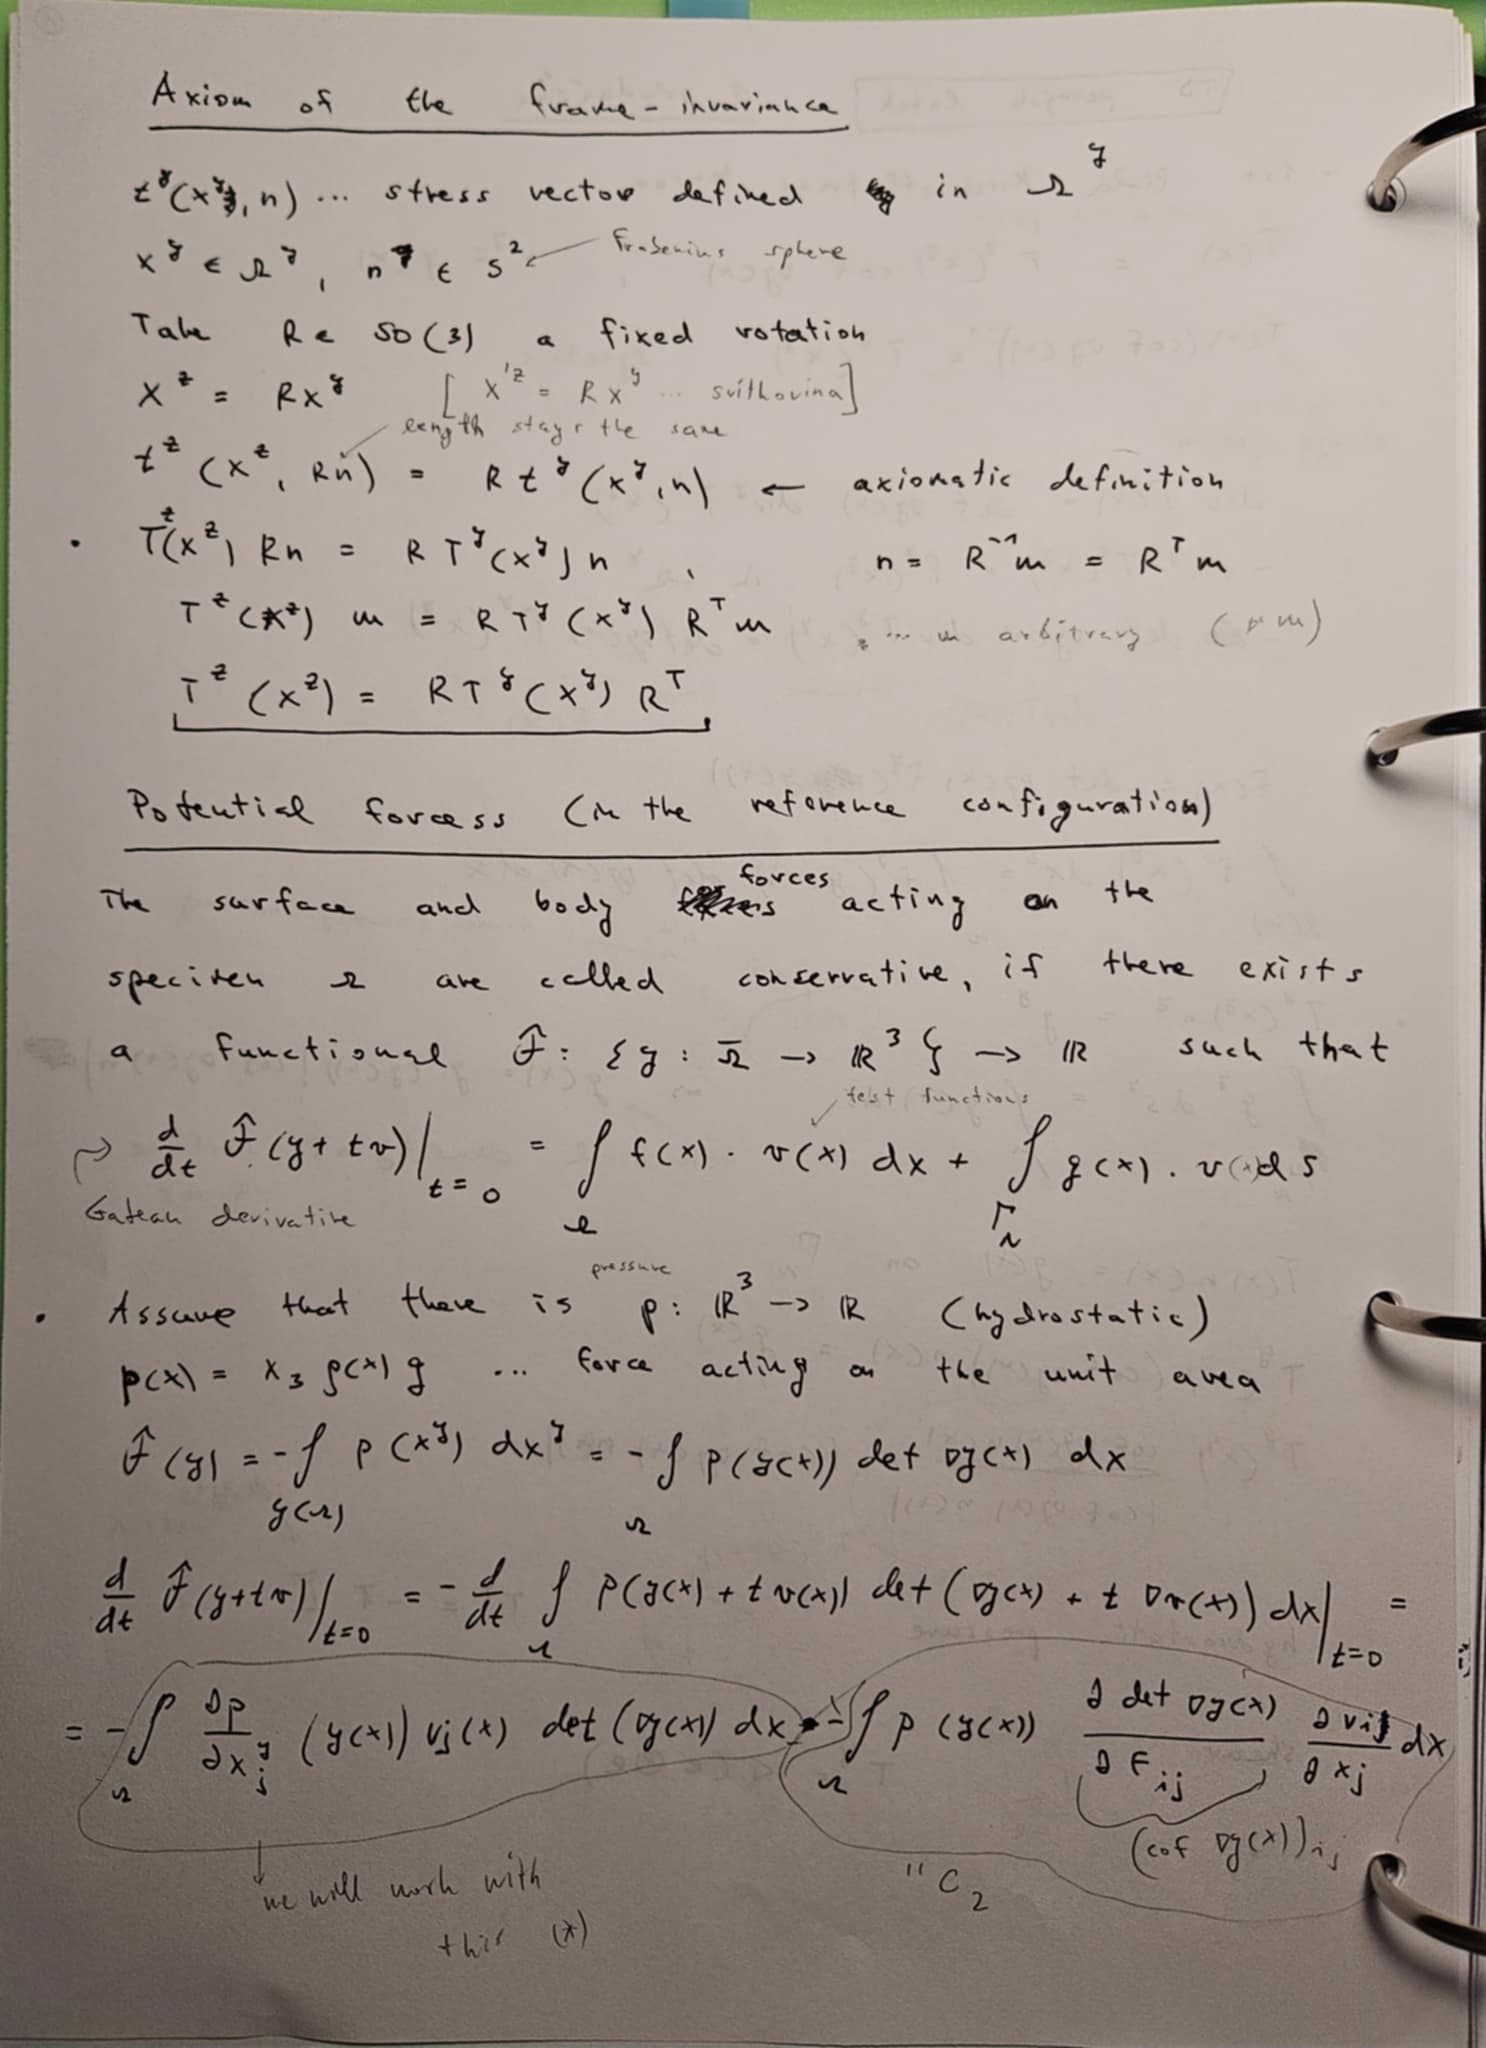 Axiom of the frame-invariance
t^y(x^y, n) ... stress vector defined in Ω^y
x^y ∈ Ω^y, n^y ∈ S^2 ← Frobenius sphere
Take R ∈ SO(3) a fixed rotation
x^z = Rx^y [x'^z = Rx^y ...
length stays the same
t^z (x^z, Rn) = R t^y (x^y, n) ← axiomatic definition
• T^z(x^z) Rn = R T^y (x^y) n , n = R^-1 m = R^T m
T^z (x^z) m = R T^y (x^y) R^T m , ... m arbitrary (∀m)
T^z (x^z) = R T^y (x^y) R^T
Potential forcess (in the reference configuration)
The surface and body forces acting on the
specimen Ω are called conservative, if there exists
a functional F̂: {y : Ω̄ → ℝ^3} → ℝ such that
test functions
d/dt F̂(y + tv)|_{t=0} = ∫_Ω f(x) · v(x) dx + ∫_{Γ_N} g(x) · v(x) dS
Gateau derivative
pressure
• Assume that there is p: ℝ^3 → ℝ (hydrostatic)
p(x) = x_3 ρ(x) g ... force acting on the unit area
F̂(y) = -∫_{y(Ω)} p(x^y) dx^y = -∫_Ω p(y(x)) det ∇y(x) dx
d/dt F̂(y+tv)|_{t=0} = -d/dt ∫_Ω p(y(x) + t v(x)) det (∇y(x) + t ∇v(x)) dx|_{t=0} =
= -∫_Ω ∂p/∂x_j^y (y(x)) v_j(x) det (∇y(x)) dx - ∫_Ω p (y(x)) ∂ det ∇y(x)/∂F_ij ∂v_i/∂x_j dx
(cof ∇y(x))_ij
"C_2
we will work with
this (*)